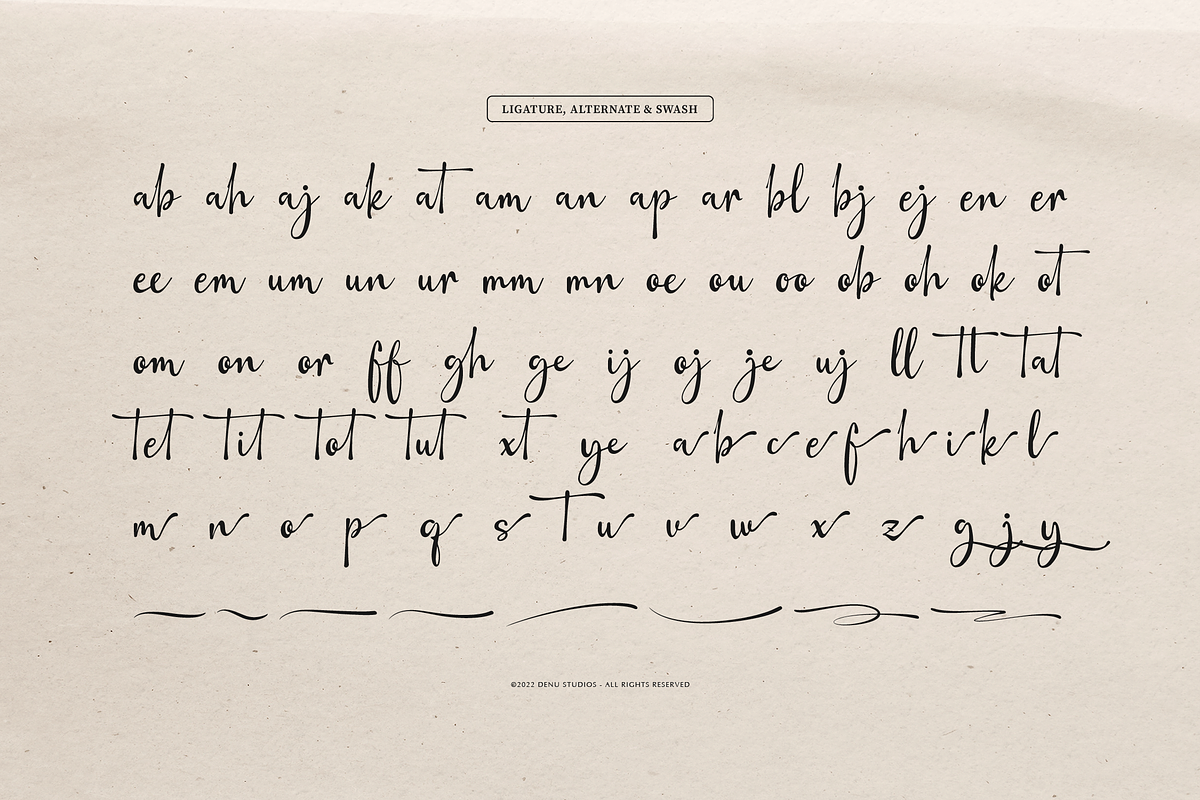 LIGATURE, ALTERNATE & SWASH
ab ah aj ak at am an ap ar bl bj ej en er
ee em um un ur mm mn oe ou oo ob oh ok ot
om on or ff gh ge ij oj je uj ll tt tat
tet tit tot tut xt ye a b c e f h i k l
m n o p q s t u v w x z g j y
©2022 DENU STUDIOS - ALL RIGHTS RESERVED